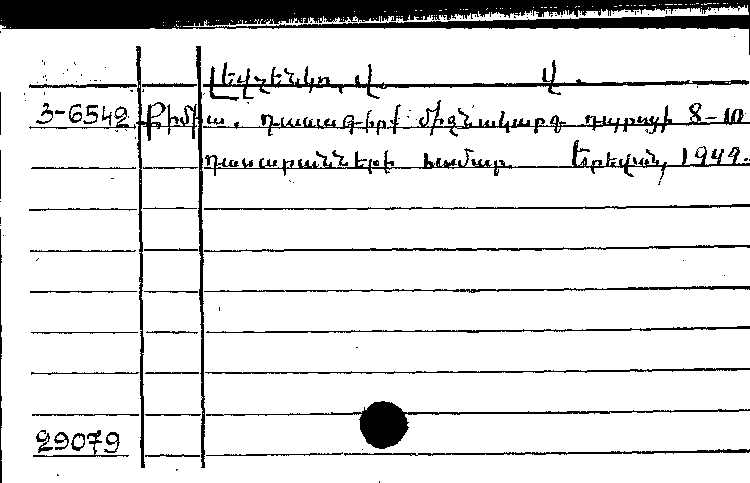 Լեվչենկո, Վ. Վ.
3-6542 Քիմիա. դասագիրք միջնակարգ դպրոցի 8-10
դասարանների համար. Երևան, 1949.
29079